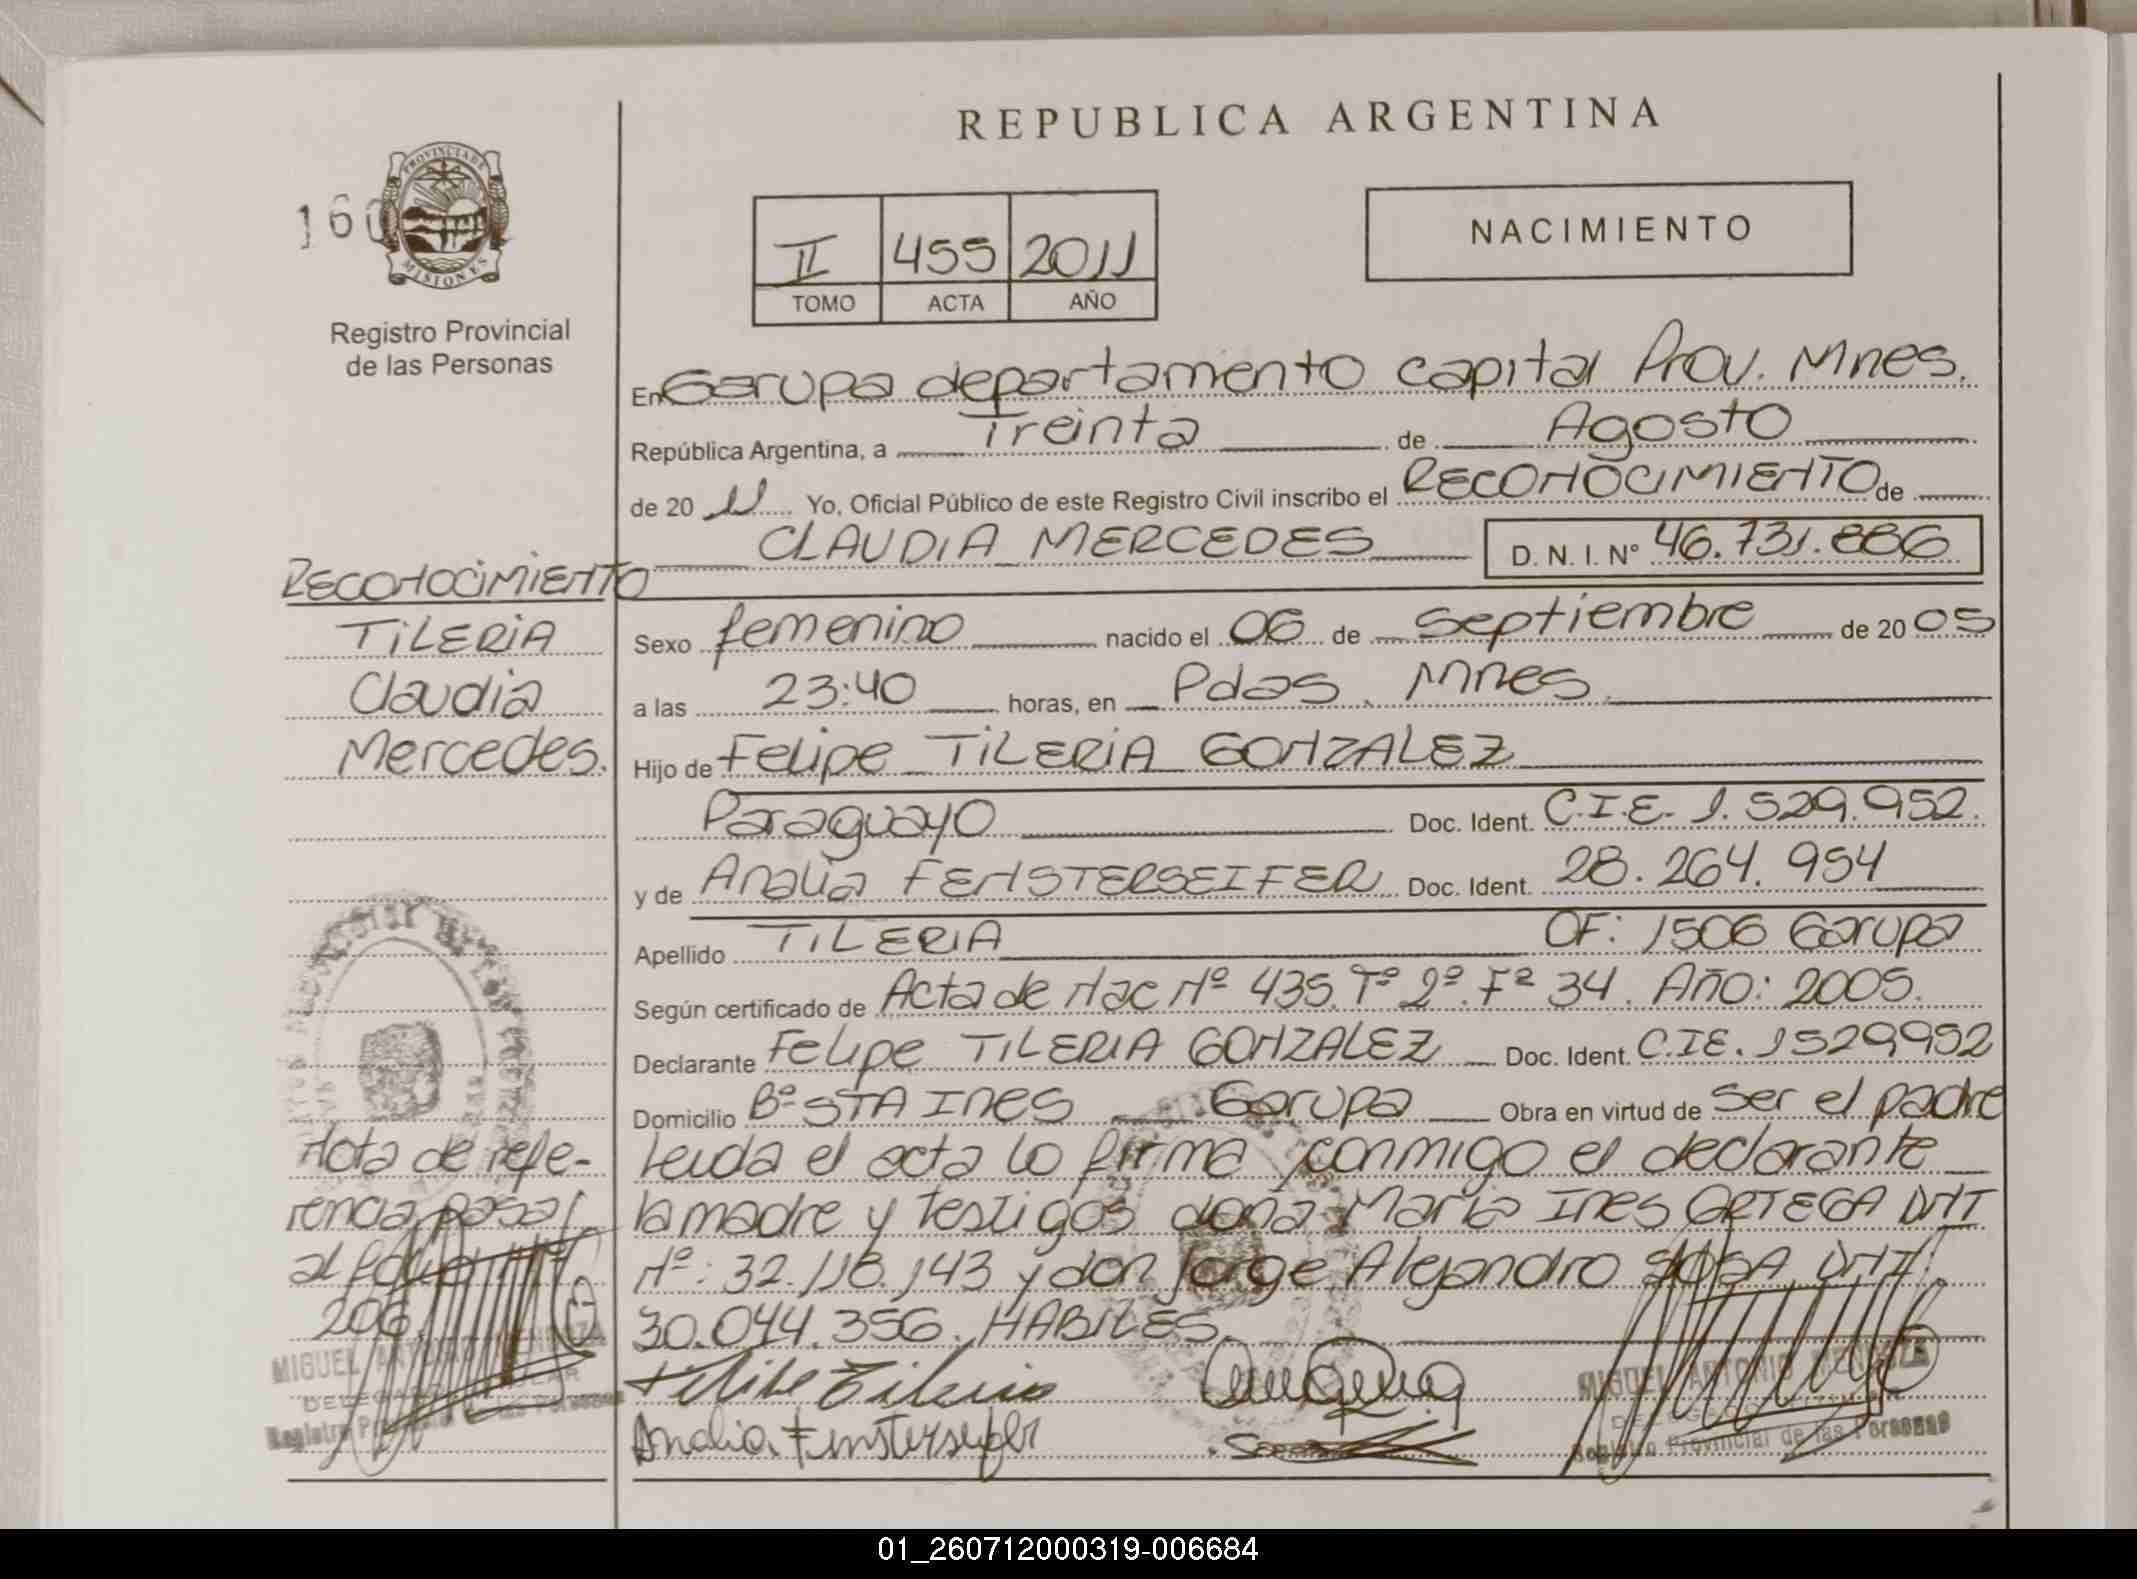 REPUBLICA ARGENTINA
160
PROVINCIA DE
MISIONES
Registro Provincial
de las Personas
II 455 2011
TOMO ACTA AÑO
NACIMIENTO
En Garupa departamento capital Prov. Mnes.
República Argentina, a Treinta de Agosto
de 20 11 Yo, Oficial Público de este Registro Civil inscribo el RECONOCIMIENTO de
CLAUDIA MERCEDES D. N. I. N° 46.731.886
RECONOCIMIENTO
TILERIA
Claudia
Mercedes.
Sexo femenino nacido el 06 de Septiembre de 20 05
a las 23:40 horas, en Pdas. Mnes.
Hijo de Felipe TILERIA GONZALEZ
Paraguayo Doc. Ident. C.I.E. 1.529.952.
y de Analia FENSTERSEIFER Doc. Ident. 28.264.954
Apellido TILERIA OF: 1506 Garupa
Según certificado de Acta de Nac Nº 435. Tº 2º. Fº 34. Año: 2005.
Declarante Felipe TILERIA GONZALEZ Doc. Ident. C.IE. 1529952
Domicilio Bº STA INES Garupa Obra en virtud de Ser el padre
Leida el acta lo firma conmigo el declarante
la madre y testigos doña Maria INES ORTEGA DNI
Nº: 32.118.143 y don Jorge Alejandro SOSA DNI:
30.044.356. HABILES.
Nota de refe-
rencia pasa
al folio
206.
MIGUEL ANTONIO MENDOZA
DELEGADO TITULAR
Registro Provincial de las Personas
Felipe Tileria
Analia Fensterseifer
MIGUEL ANTONIO MENDOZA
DELEGADO TITULAR
Registro Provincial de las Personas
01_260712000319-006684